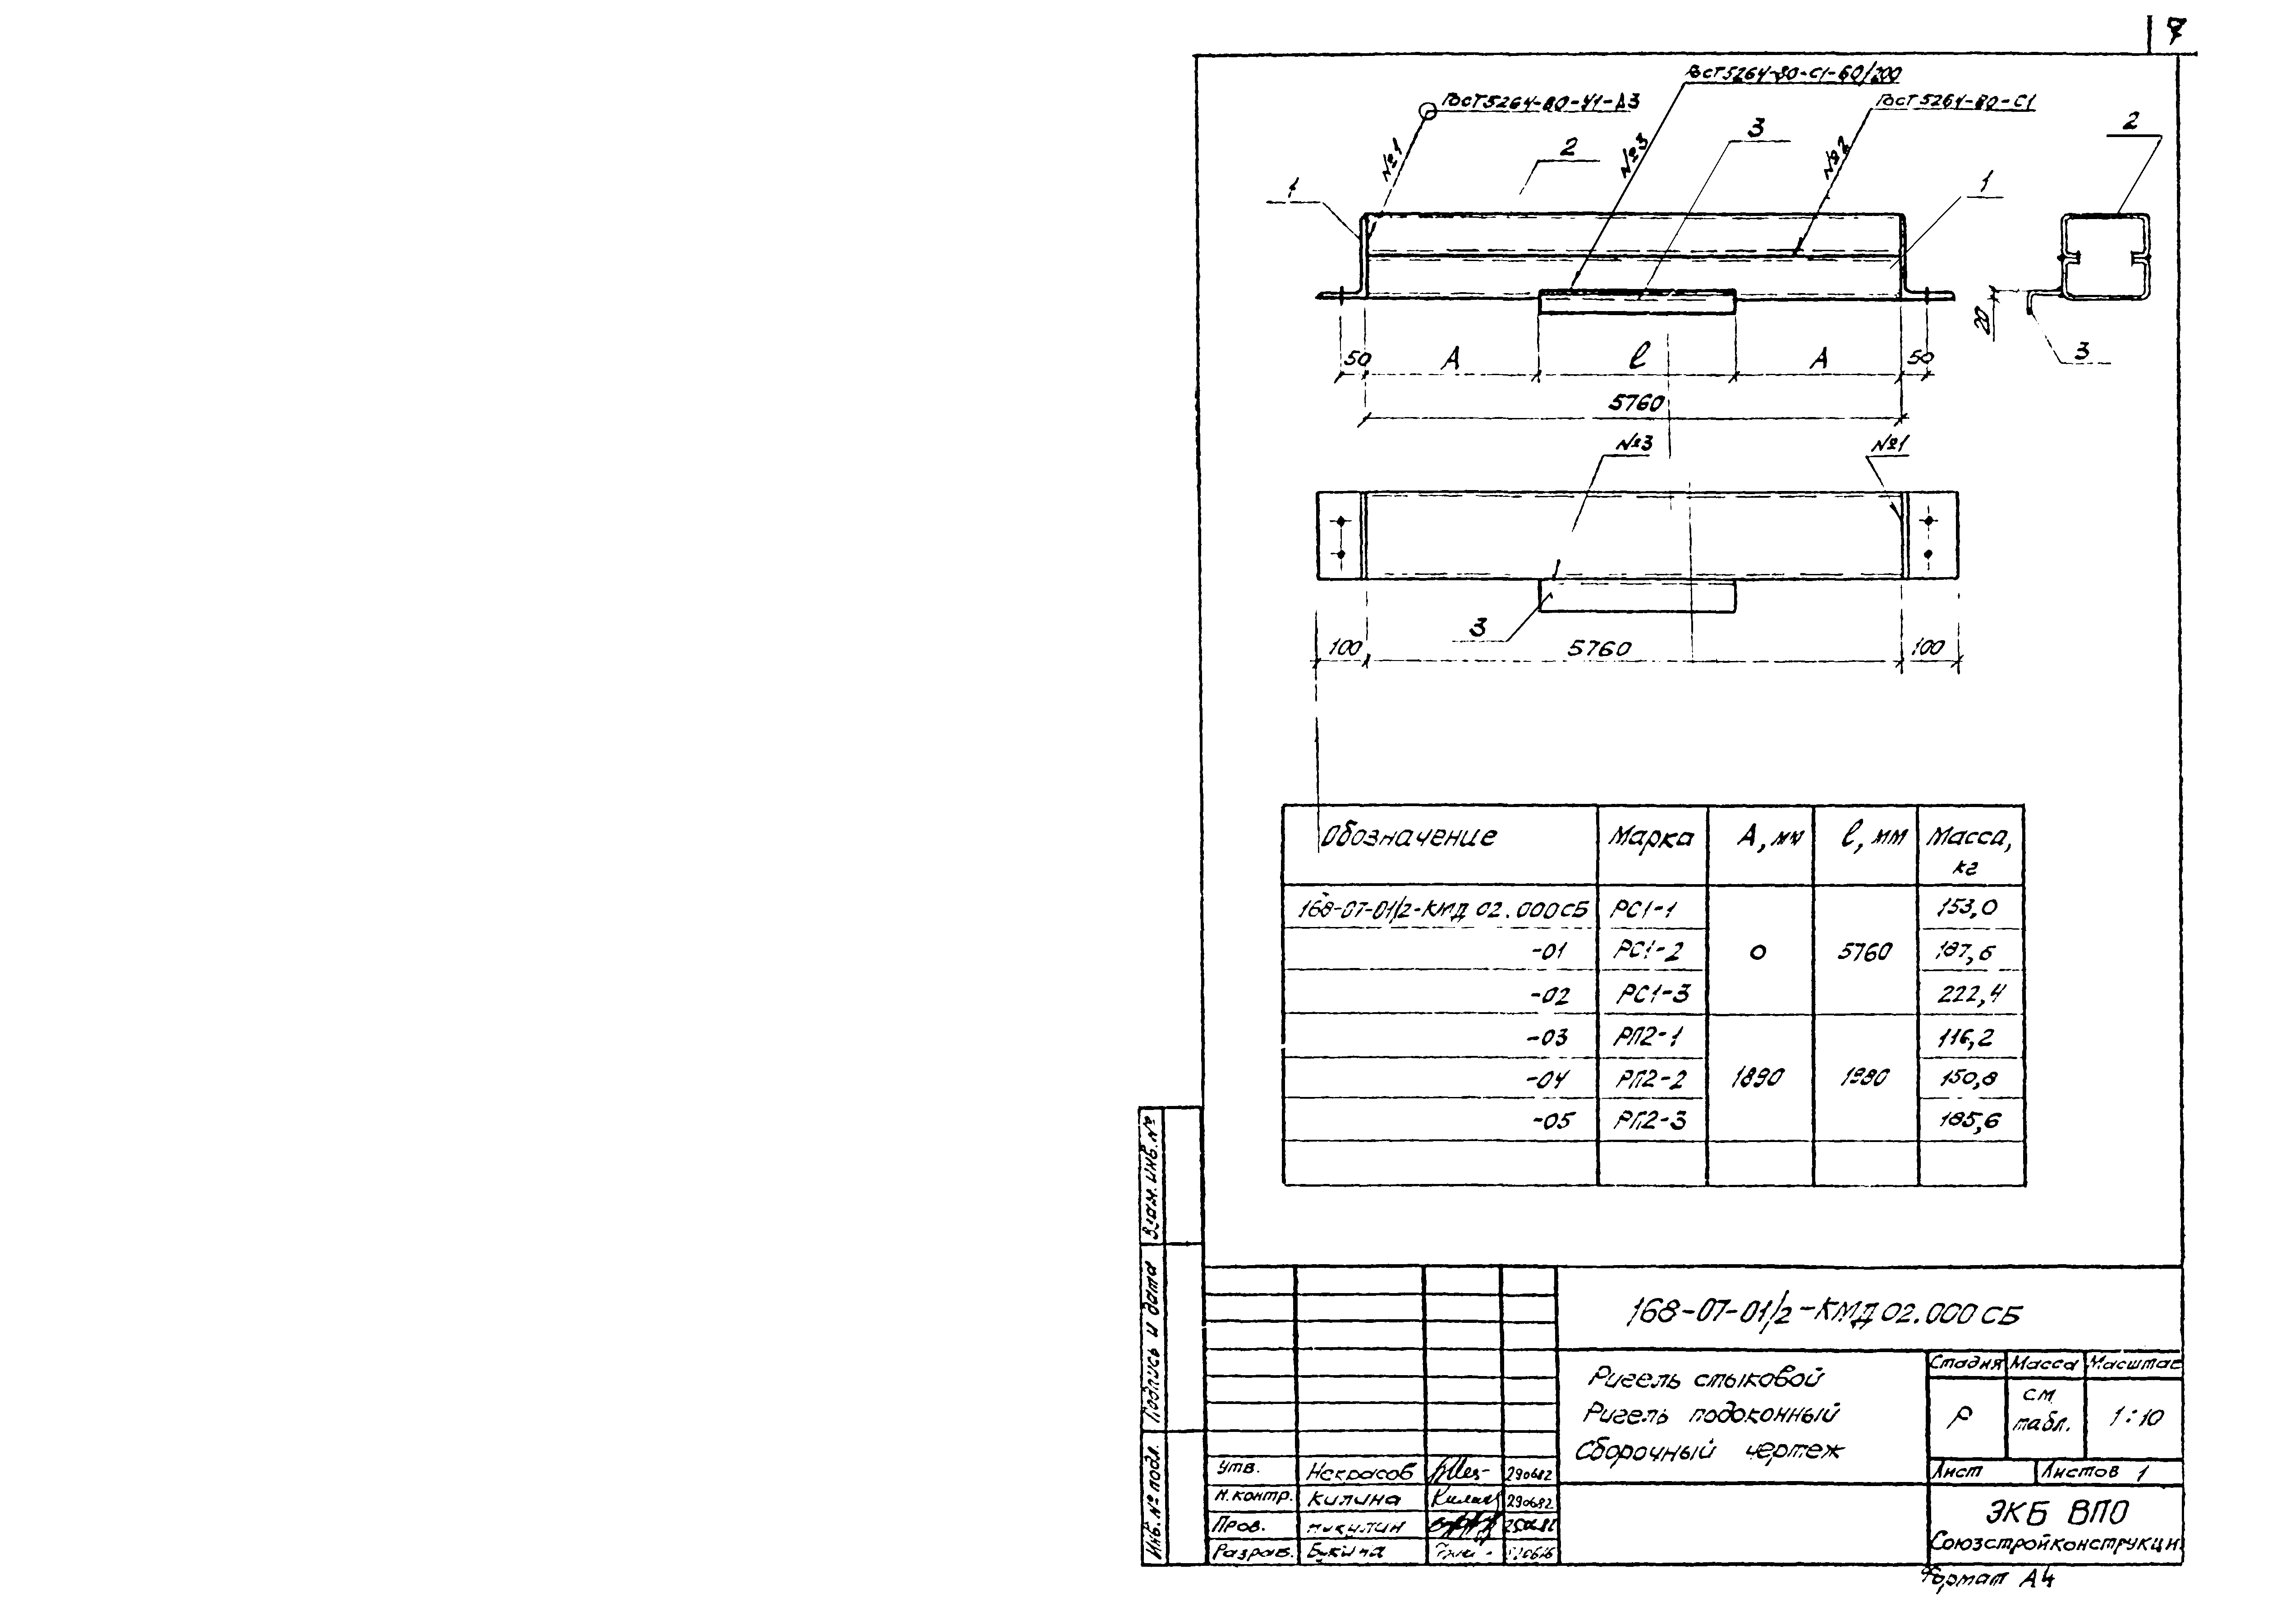 7
ГОСТ5264-80-С1-60/200
ГОСТ5264-80-У1-Δ3
ГОСТ5264-80-С1
№1
2
№3
3
№2
1
1
2
20
3
50
А
ℓ
А
50
5760
№3
№1
3
100
5760
100
Обозначение Марка А, мм ℓ, мм Масса, кг
168-07-01/2-КМД 02.000СБ РС1-1 153,0
-01 РС1-2 0 5760 187,6
-02 РС1-3 222,4
-03 РП2-1 116,2
-04 РП2-2 1890 1980 150,8
-05 РП2-3 185,6
Взам. инв. №
Подпись и дата
Инв. № подл.
168-07-01/2-КМД 02.000 СБ
Ригель стыковой
Ригель подоконный
Сборочный чертеж
Стадия Масса Масштаб
Р см. табл. 1:10
Лист Листов 1
Утв. Некрасов 290682
Н.контр. Килина 290682
Пров. Никулин
Разраб. Букина
ЭКБ ВПО
Союзстройконструкци
Формат А4